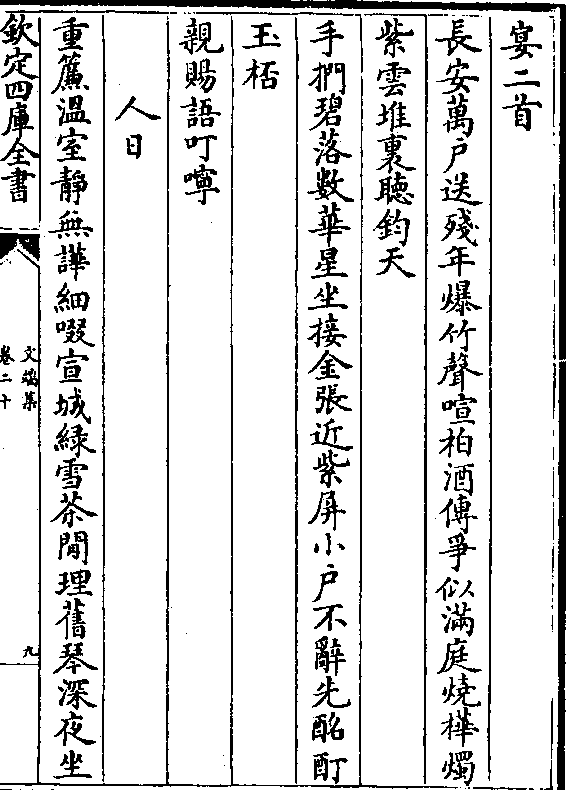 宴二首
長安萬戶送殘年爆竹聲喧柏酒傳爭似滿庭燒樺燭
紫雲堆裏聽鈞天
手捫碧落數華星坐接金張近紫屏小戶不辭先酩酊
玉桮
親賜語叮嚀
人日
重簾溫室靜無譁細啜宣城緑雪茶閒理舊琴深夜坐
欽定四庫全書
文端集
卷二十
九